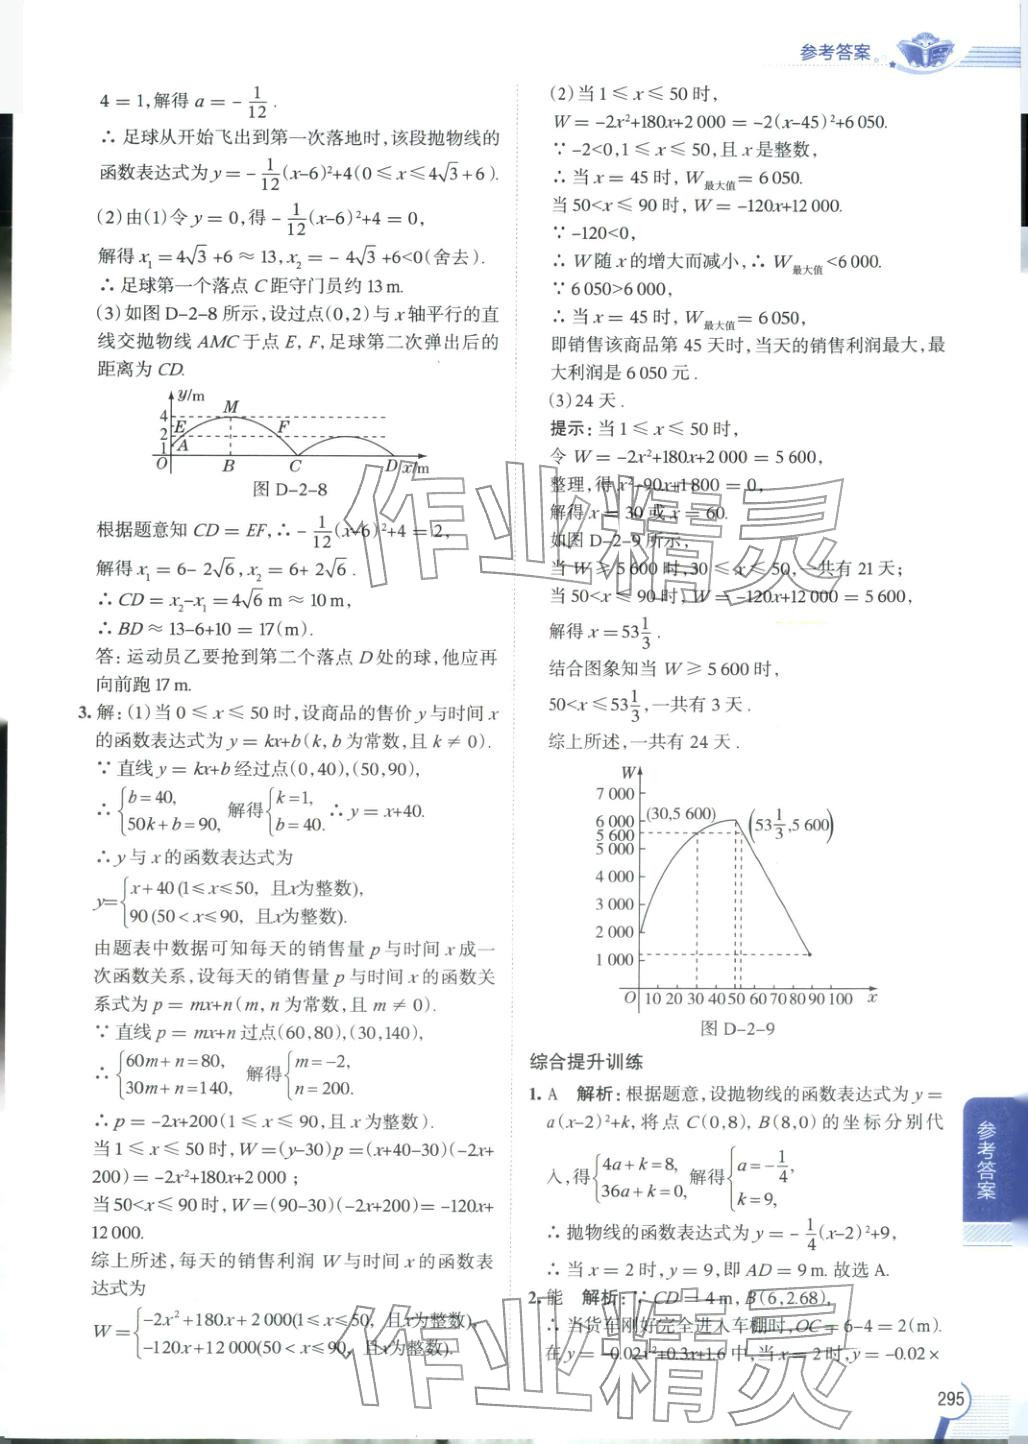 参考答案
4=1,解得 a=-1/12.
∴ 足球从开始飞出到第一次落地时,该段抛物线的
函数表达式为 y=-1/12(x-6)²+4(0≤x≤4√3+6).
(2)由(1)令 y=0,得 -1/12(x-6)²+4=0,
解得 x₁=4√3+6≈13,x₂=-4√3+6<0(舍去).
∴ 足球第一个落点 C 距守门员约 13 m.
(3)如图 D-2-8 所示,设过点(0,2)与 x 轴平行的直
线交抛物线 AMC 于点 E,F,足球第二次弹出后的
距离为 CD.
y/m
M
4
E
F
2
A
1
O
B
C
D
x/m
图 D-2-8
根据题意知 CD=EF,∴ -1/12(x-6)²+4=2,
解得 x₁=6-2√6,x₂=6+2√6.
∴ CD=x₂-x₁=4√6 m≈10 m,
∴ BD≈13-6+10=17(m).
答:运动员乙要抢到第二个落点 D 处的球,他应再
向前跑 17 m.
3. 解:(1)当 0≤x≤50 时,设商品的售价 y 与时间 x
的函数表达式为 y=kx+b(k,b 为常数,且 k≠0).
∵ 直线 y=kx+b 经过点(0,40),(50,90),
∴ {b=40, 50k+b=90, 解得 {k=1, b=40. ∴ y=x+40.
∴ y 与 x 的函数表达式为
y={x+40(1≤x≤50, 且x为整数),
90(50<x≤90, 且x为整数).
由题表中数据可知每天的销售量 p 与时间 x 成一
次函数关系,设每天的销售量 p 与时间 x 的函数关
系式为 p=mx+n(m,n 为常数,且 m≠0).
∵ 直线 p=mx+n 过点(60,80),(30,140),
∴ {60m+n=80, 30m+n=140, 解得 {m=-2, n=200.
∴ p=-2x+200(1≤x≤90,且 x 为整数).
当 1≤x≤50 时,W=(y-30)p=(x+40-30)(-2x+
200)=-2x²+180x+2 000;
当 50<x≤90 时,W=(90-30)(-2x+200)=-120x+
12 000.
综上所述,每天的销售利润 W 与时间 x 的函数表
达式为
W={-2x²+180x+2 000(1≤x≤50, 且x为整数),
-120x+12 000(50<x≤90, 且x为整数).
(2)当 1≤x≤50 时,
W=-2x²+180x+2 000=-2(x-45)²+6 050.
∵ -2<0,1≤x≤50,且 x 是整数,
∴ 当 x=45 时,W最大值=6 050.
当 50<x≤90 时,W=-120x+12 000.
∵ -120<0,
∴ W 随 x 的增大而减小,∴ W最大值<6 000.
∵ 6 050>6 000,
∴ 当 x=45 时,W最大值=6 050,
即销售该商品第 45 天时,当天的销售利润最大,最
大利润是 6 050 元.
(3)24 天.
提示:当 1≤x≤50 时,
令 W=-2x²+180x+2 000=5 600,
整理,得 x²-90x+1 800=0,
解得 x=30 或 x=60.
如图 D-2-9 所示,
当 W≥5 600 时,30≤x≤50,一共有 21 天;
当 50<x≤90 时,W=-120x+12 000=5 600,
解得 x=53 1/3.
结合图象知当 W≥5 600 时,
50<x≤53 1/3,一共有 3 天.
综上所述,一共有 24 天.
W
7 000
6 000
5 600
5 000
4 000
3 000
2 000
1 000
(30,5 600)
(53 1/3,5 600)
O 10 20 30 40 50 60 70 80 90 100 x
图 D-2-9
综合提升训练
1. A 解析:根据题意,设抛物线的函数表达式为 y=
a(x-2)²+k,将点 C(0,8),B(8,0)的坐标分别代
入,得 {4a+k=8, 36a+k=0, 解得 {a=-1/4, k=9,
∴ 抛物线的函数表达式为 y=-1/4(x-2)²+9,
∴ 当 x=2 时,y=9,即 AD=9 m. 故选 A.
2. 能 解析:∵ CD=4 m,B(6,2.68),
∴ 当货车刚好完全进入车棚时,OC=6-4=2(m).
在 y=-0.02x²+0.3x+1.6 中,当 x=2 时,y=-0.02×
参考答案
295
作业精灵
作业精灵